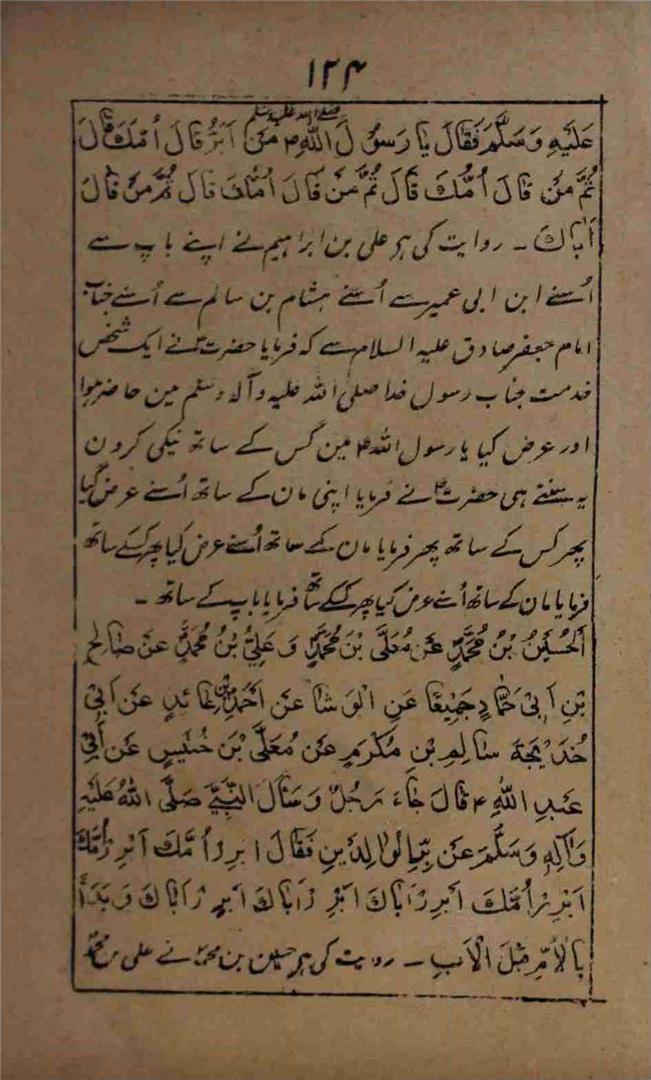 ۱۲۴
صلے اللہ علیہ وسلم
عَلَيْهِ وَسَلَّمَ فَقَالَ يَا رَسُوْلَ اللّٰهِ مَنْ اَبَرُّ قَالَ اُمَّكَ قَالَ
ثُمَّ مَنْ قَالَ اُمَّكَ قَالَ ثُمَّ مَنْ قَالَ اُمَّكَ قَالَ ثُمَّ مَنْ قَالَ
اَبَاكَ ۔ روایت کی ہر علی بن ابراہیم نے اپنے باپ سے
اُسنے ابن ابی عمیر سے اُسنے ہشام بن سالم سے اُسنے جناب
امام جعفر صادق علیہ السلام سے کہ فرمایا حضرت نے ایک شخص
خدمت جناب رسول خدا صلی اللہ علیہ وآلہ وسلم مین حاضر ہوا
اور عرض کیا یا رسول اللہ مین کس کے ساتھ نیکی کرون
یہ سنتے ہی حضرت نے فرمایا اپنی مان کے ساتھ اُسنے عرض کیا
پھر کس کے ساتھ پھر فرمایا مان کے ساتھ اُسنے عرض کیا پھر کسکے ساتھ
فرمایا مان کے ساتھ اُسنے عرض کیا پھر کسکے ساتھ فرمایا باپ کے ساتھ ۔
اَلْحُسَيْنُ بْنُ مُحَمَّدٍ عَنْ مُعَلَّى بْنِ مُحَمَّدٍ وَ عَلِيُّ بْنُ مُحَمَّدٍ عَنْ صَالِحِ
بْنِ اَبِيْ حَمَّادٍ جَمِيْعًا عَنِ الْوَشَّا عَنْ اَحْمَدَ بْنِ عَائِذٍ عَنْ اَبِيْ
خَدِيْجَةَ سَالِمِ بْنِ مُكْرَمٍ عَنْ مُعَلَّى بْنِ خُنَيْسٍ عَنْ اَبِيْ
عَبْدِ اللّٰهِ ۴ قَالَ جَاءَ رَجُلٌ وَسَأَلَ النَّبِيَّ صَلَّى اللّٰهُ عَلَيْهِ
وَاٰلِهٖ وَسَلَّمَ عَنْ بِرِّ الْوَالِدَيْنِ فَقَالَ اَبْرِرْ اُمَّكَ اَبْرِرْ اُمَّكَ
اَبْرِرْ اُمَّكَ اَبْرِرْ اَبَاكَ اَبْرِرْ اَبَاكَ اَبْرِرْ اَبَاكَ وَبَدَأَ
بِالْاُمِّ قَبْلَ الْاَبِ ۔ روایت کی ہر حسین بن محمد نے علی بن محمد